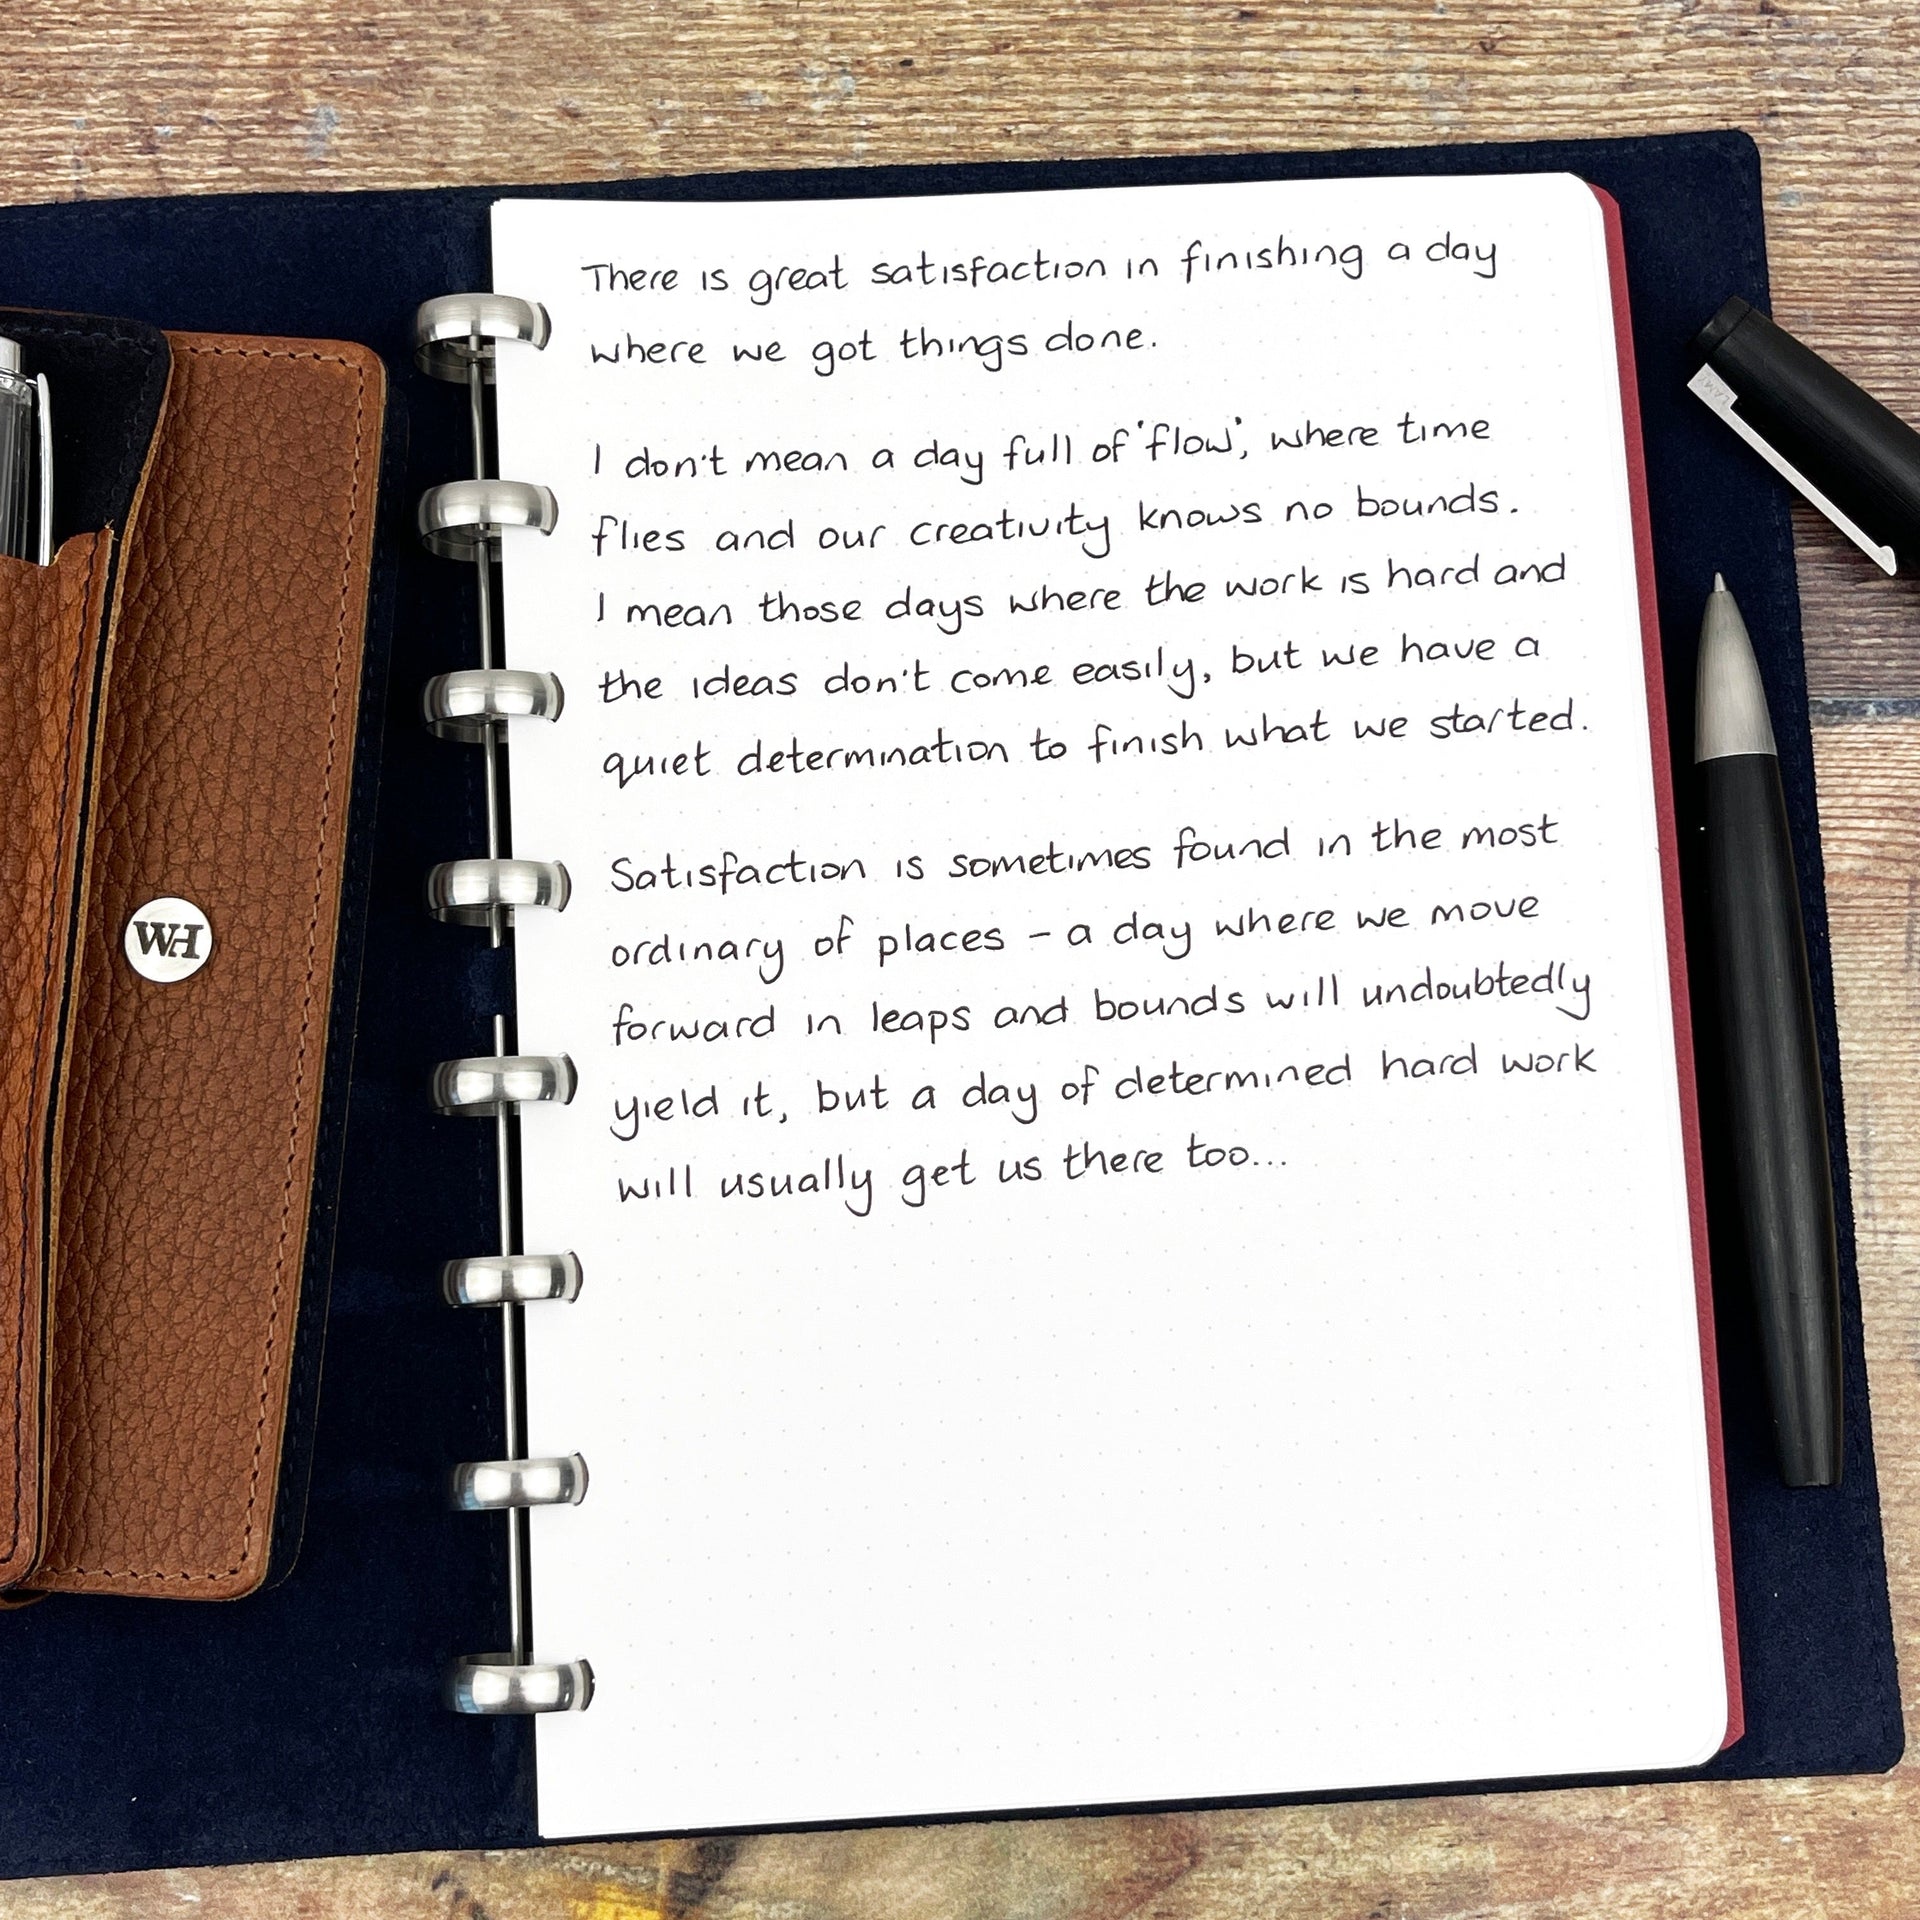 There is great satisfaction in finishing a day
where we got things done.
I don't mean a day full of 'flow', where time
flies and our creativity knows no bounds.
I mean those days where the work is hard and
the ideas don't come easily, but we have a
quiet determination to finish what we started.
Satisfaction is sometimes found in the most
ordinary of places - a day where we move
forward in leaps and bounds will undoubtedly
yield it, but a day of determined hard work
will usually get us there too...
WH
LAMY